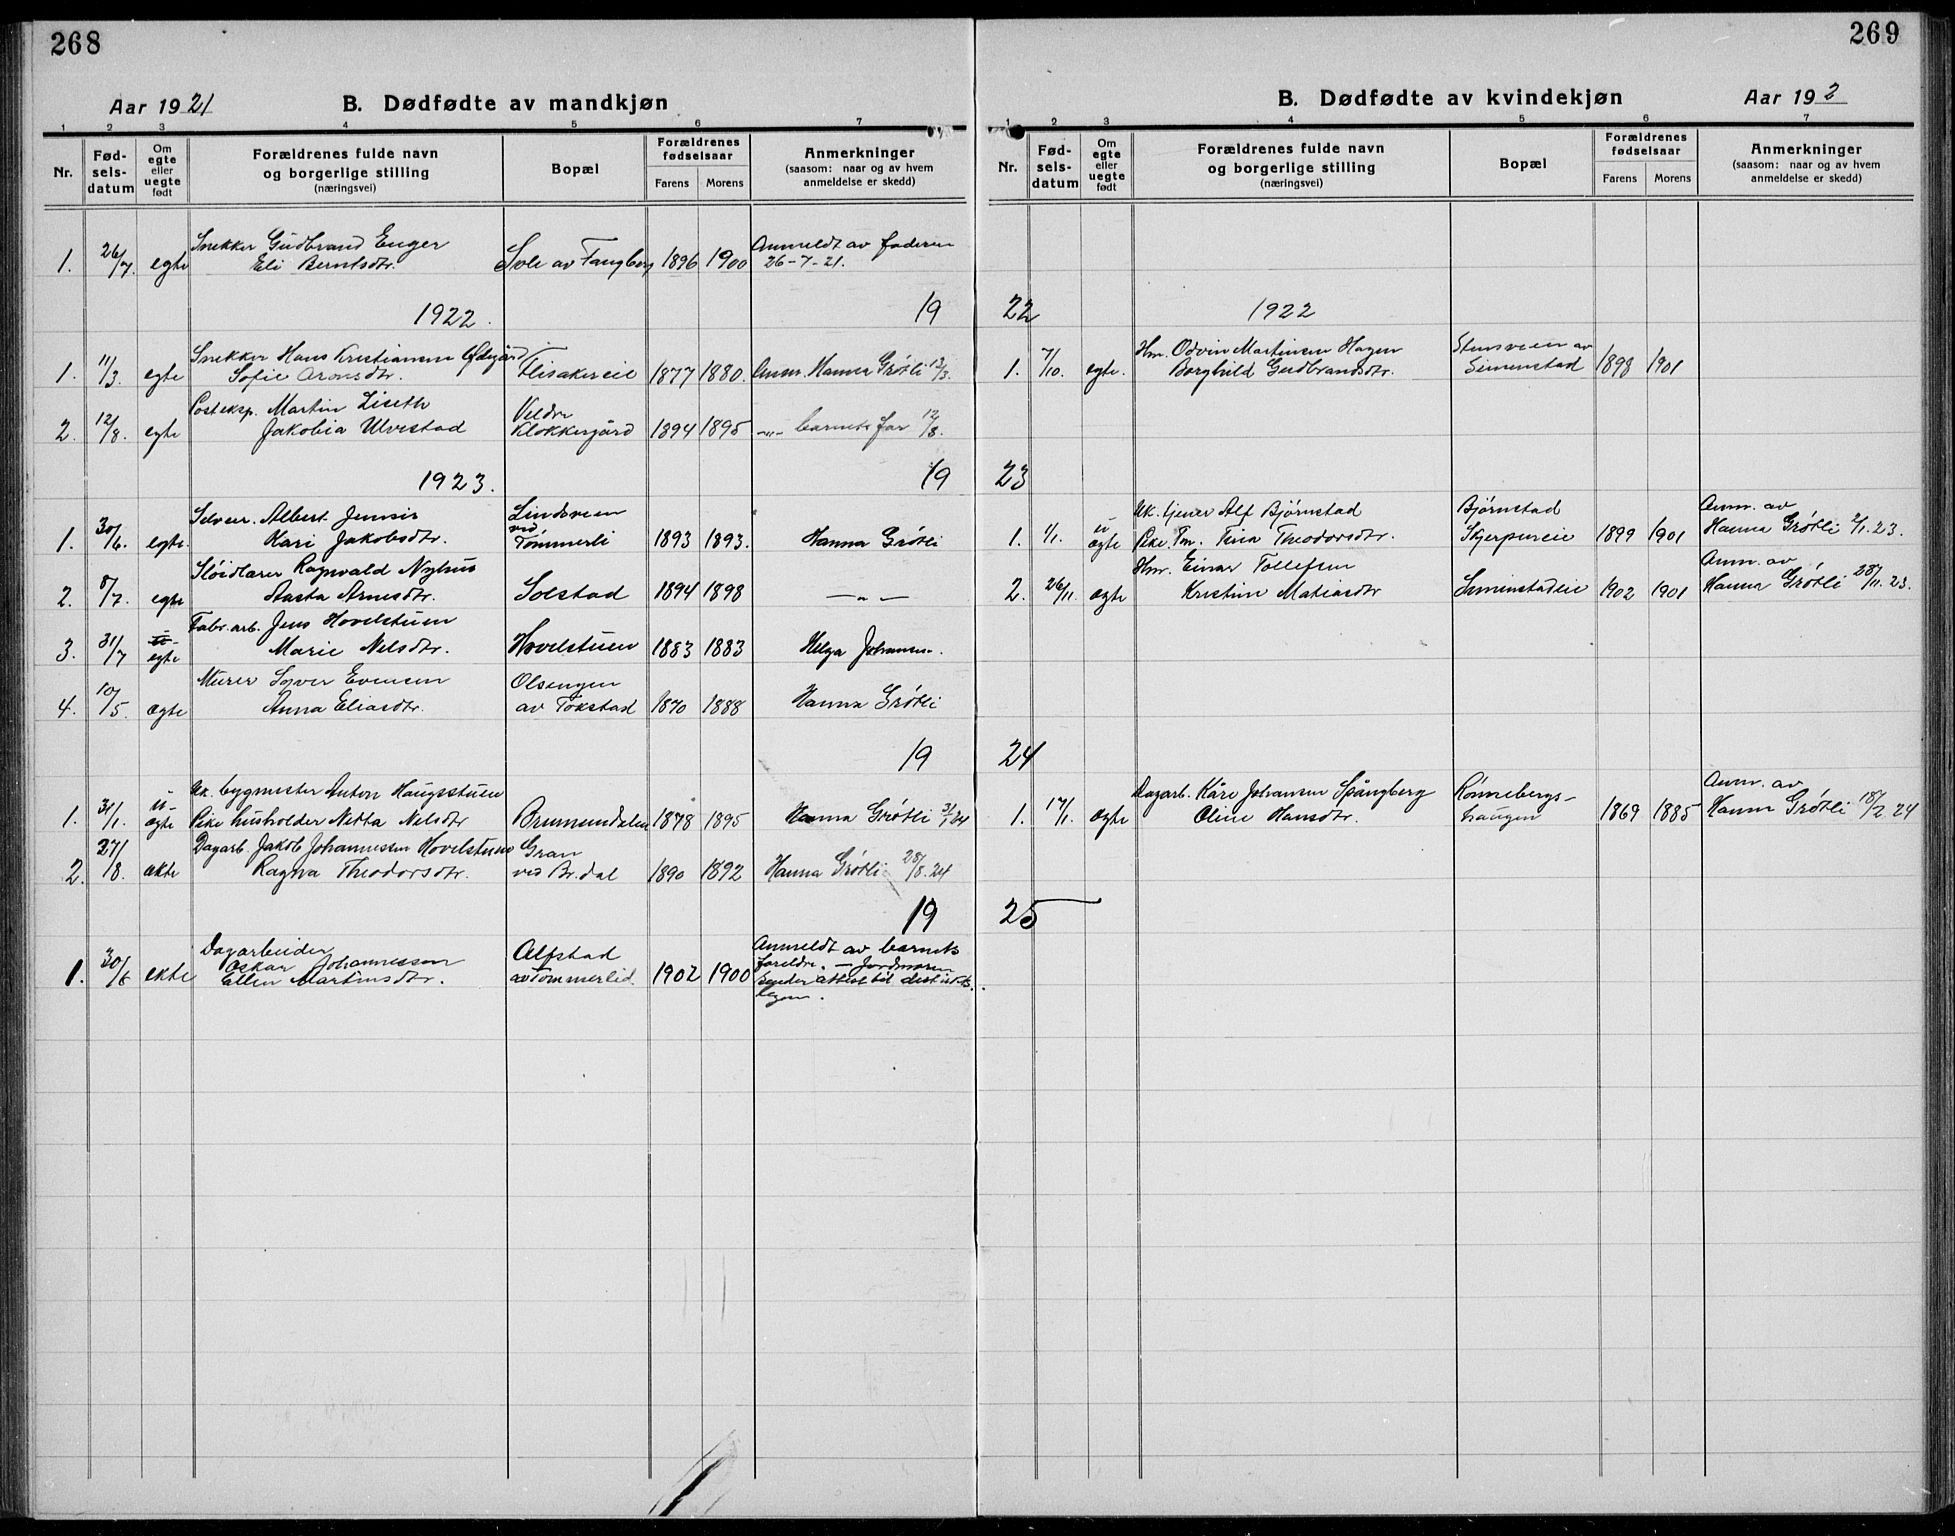 268
Aar 1921
B. Dødfødte av mandkjøn
1 2 3 4 5 6 7
Nr.
Fød-
sels-
datum
Om
egte
eller
uegte
født
Forældrenes fulde navn
og borgerlige stilling
(næringsvei)
Bopæl
Forældrenes
fødselsaar
Farens Morens
Anmerkninger
(saasom: naar og av hvem
anmeldelse er skedd)
Snekker Gudbrand Enger Anmeldt av faderen
1. 26/7 egte Eli Berntsdtr. Sole av Fangberg 1896 1900 26-7-21.
1922. 19
Snekker Hans Kristiansen Ødegård
1. 11/3. egte Sofie Aronsdtr. Flisakereie 1877 1880. Anm. Hanna Grøtli 12/3.
Posteksp. Martin Liseth Veldre
2. 12/8. egte Jakobia Ulvestad Klokkergård 1894 1895 -"- barnets far 12/8.
1923. 19
Selveier. Albert Jensen Lindsveen
ved
1. 30/6. egte. Kari Jakobsdtr. Tømmerli 1893 1893. Hanna Grøtli
Sløidlærer Ragnvald Nyhus
2. 8/7. egte Aasta Arnesdtr. Solstad 1894 1898 — " —
Fabr. arb. Jens Hovelstuen
3. 31/7 egte Marie Nelsdtr. Hovelstuen 1883 1883 Helga Johansen.
Murer Syver Evensen Olsengen
4. 10/5. ægte Anna Eliasdtr. av Tokstad 1870 1888 Hanna Grøtli
19
Uk. bygmester Anton Haugsstuen
1. 31/1. u-ægte Pike husholder Netta Nelsdtr Brumunddalen 1878 1895 Hanna Grøtli 31/1 24
Dagarb. Jakob Johannessen Hovelstuen Gran
2. 27/8. ekte Ragna Theodorsdtr. ved Br.dal 1890 1892 Hanna Grøtli 28/8. 24
19
Dagarbeider Alfstad Anmeldt av barnets
Oskar Johannessen foreldre. — Jordmoren
1. 30/6 ekte Ellen Martinsdtr. av Tømmerlid. 1902 1900 sender attest til distrikts-
legen.
269
B. Dødfødte av kvindekjøn
Aar 192
1 2 3 4 5 6 7
Nr.
Fød-
sels-
datum
Om
egte
eller
uegte
født
Forældrenes fulde navn
og borgerlige stilling
(næringsvei)
Bopæl
Forældrenes
fødselsaar
Farens Morens
Anmerkninger
(saasom: naar og av hvem
anmeldelse er skedd)
22 1922
Hm. Odvin Martinsen Hagen Stensveen av
1. 7/10. egte. Borghild Gudbrandsdtr. Simenstad 1898 1901
23
Uk. tjener Alf Bjørnstad Bjørnstad Anm. av
1. 1/1. u-ægte Pike. Tm. Tina Theodorsdtr. Skjerpereie 1899 1901 Hanna Grøtli 2/1. 23.
Hm. Einar Tollefsen Anm. av
2. 26/11. ægte Kristine Matiasdtr Simenstadeie 1902 1901 Hanna Grøtli 28/11. 23.
24
Dagarb. Kåre Johansen Spångberg Rønnebergs- Anm. av
1. 17/1. ægte Oline Hansdtr. haugen 1869 1885 Hanna Grøtli 18/2 24
25